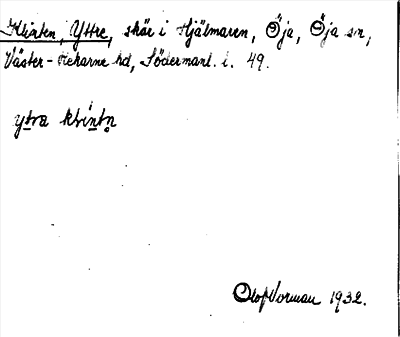 Klinten, Yttre, skär i Hjälmaren, Öja, Öja sn,
Väster-Rekarne hd, Södermanl. l. 49.
ytra klintn̥
Olof Vorman 1932.